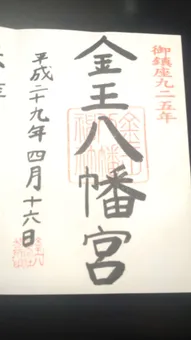 御鎮座九二五年
金王八幡宮
平成二十九年四月十六日